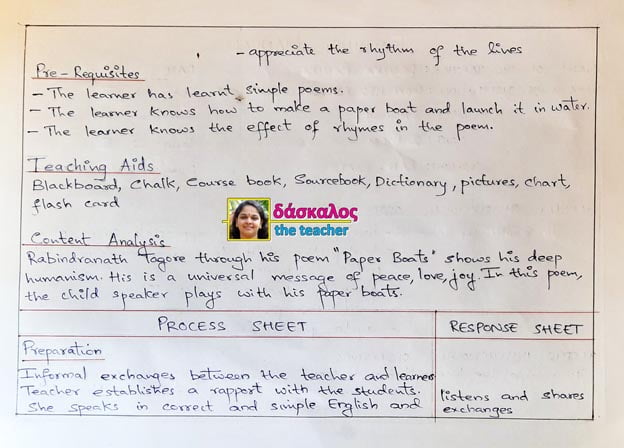 - appreciate the rhythm of the lines
Pre-Requisites
- The learner has learnt simple poems.
- The learner knows how to make a paper boat and launch it in water.
- The learner knows the effect of rhymes in the poem.
Teaching Aids
Blackboard, Chalk, Course book, Sourcebook, Dictionary, pictures, chart,
flash card
δάσκαλος
the teacher
Content Analysis
Rabindranath Tagore through his poem "Paper Boats" shows his deep
humanism. His is a universal message of peace, love, joy. In this poem,
the child speaker plays with his paper boats.
PROCESS SHEET
RESPONSE SHEET
Preparation
Informal exchanges between the teacher and learner
Teacher establishes a rapport with the students.
She speaks in correct and simple English and
listens and shares
exchanges